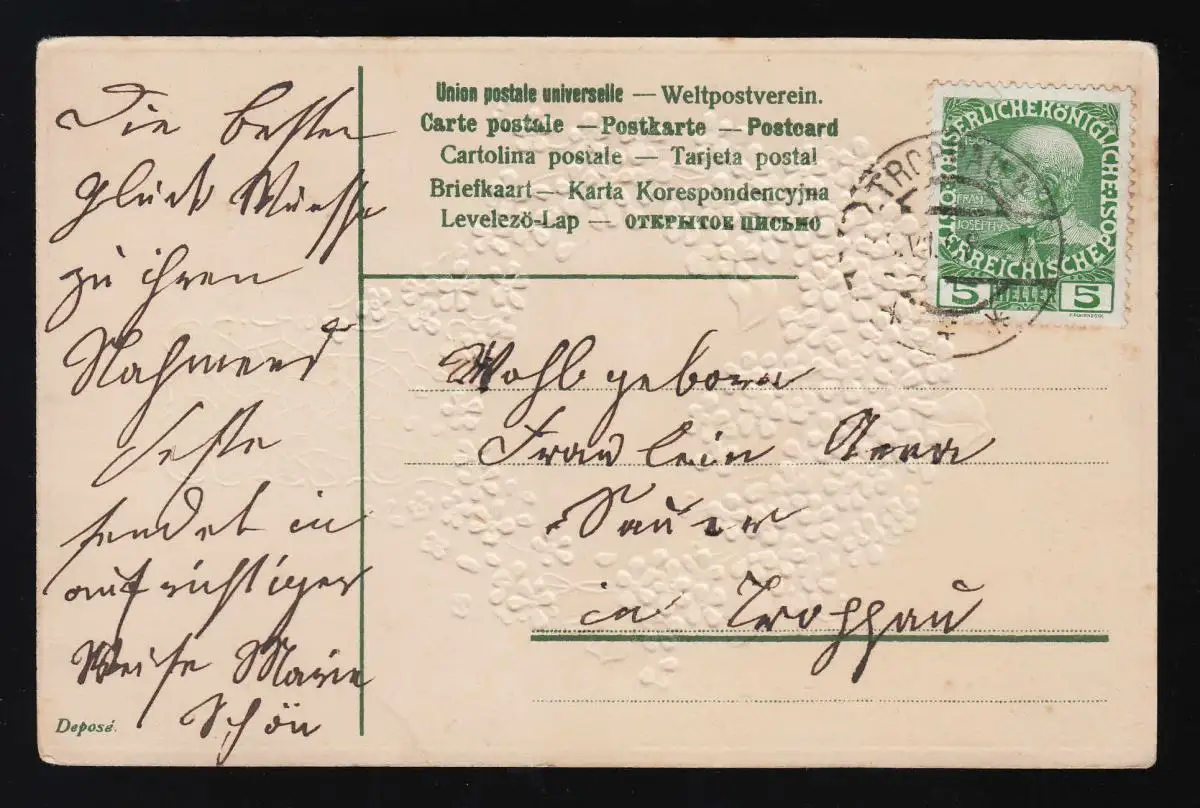 Die besten
Glück Wünsche
zu ihren
Nahmens
feste
sendet in
aufrichtiger
Weise Marie
Schön
Deposé.
Union postale universelle — Weltpostverein.
Carte postale — Postkarte — Postcard
Cartolina postale — Tarjeta postal
Briefkaart — Karta Korespondencyjna
Levelező-Lap — ОТКРЫТОЕ ПИСЬМО
KAISERLICHE KÖNIGLICHE ÖSTERREICHISCHE POST
FRANC
JOSEPHUS
5 HELLER 5
Wohlgeborn
Fräulein Anna
Sauer
in Troppau